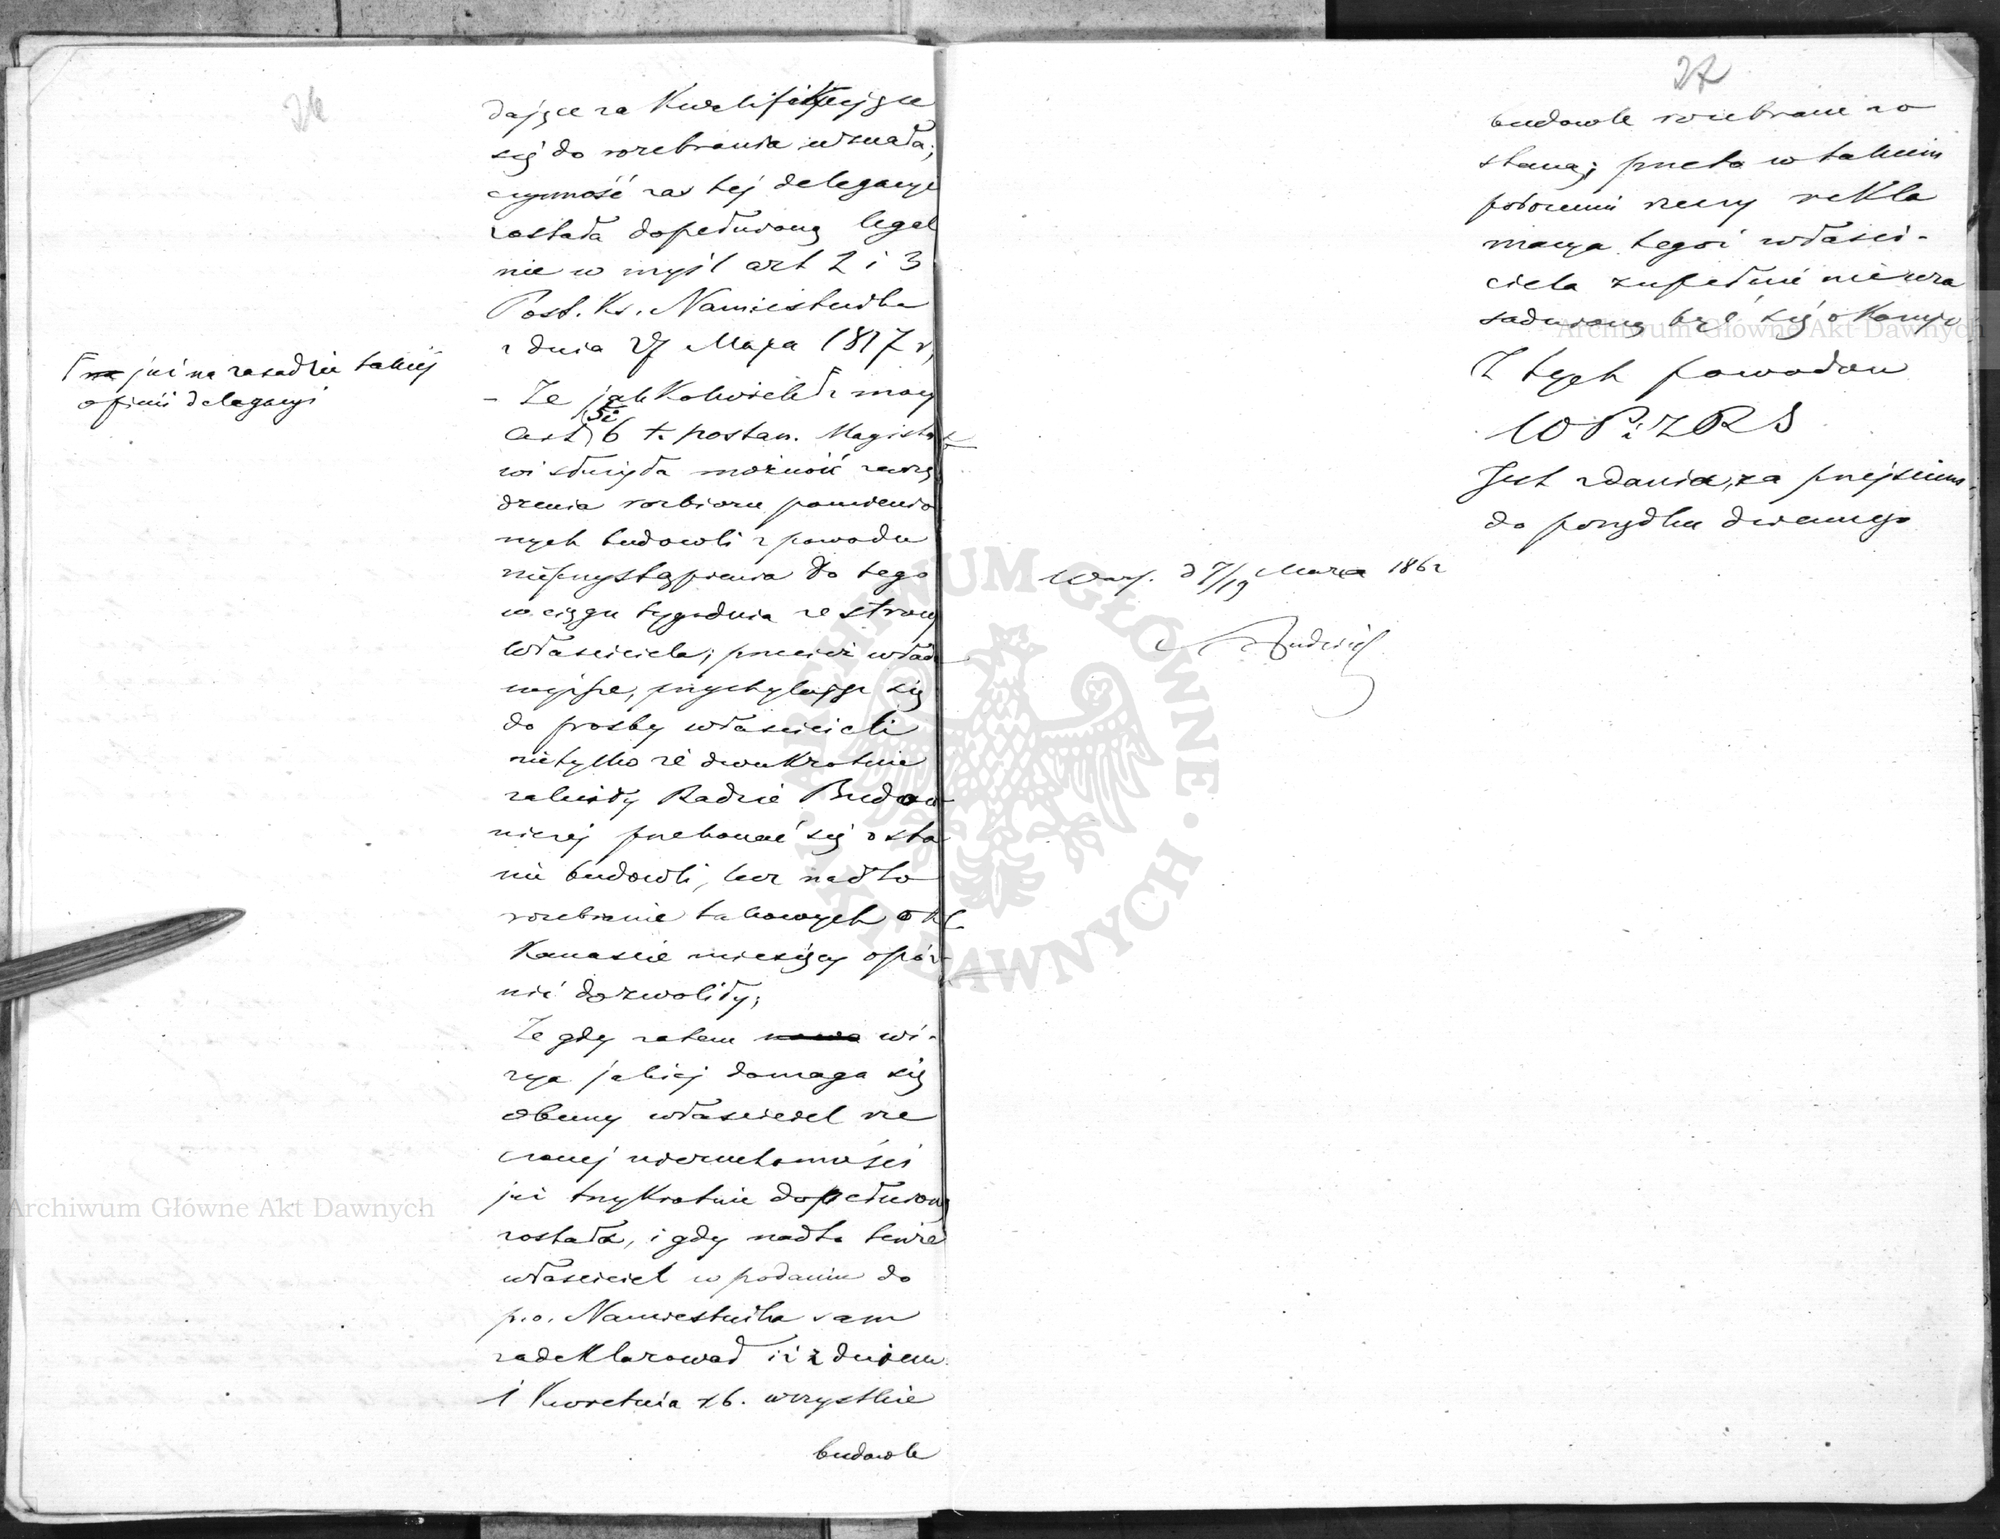 26
dające za kwalifikujące
się do rozebrania uznała;
czynność zaś tej delegacyi
została dopełnioną legal
nie w myśl art 2 i 3
Post. Ks. Namiestnika
z dnia 27 Maja 1817 r,
– Że jakkolwiek z mocy
art 6 t. postan. Magistra
wi służyła możność zarzą
dzenia rozbioru pomienio
nych budowli z powodu
nieprzystąpienia do tego
w ciągu tygodnia ze strony
właściciela; przecież władz
wyższe, przychylając się
do prośby właścicieli
nietylko że dwukrotnie
zaleciły Radzie Budow
niczej przekonać się o sta
nie budowli, lecz nadto
rozebranie takowych o kil
kanaście miesięcy opóź
nić dozwoliły;
Że gdy zatem nowa wi-
zya jakiej domaga się
obecny właściciel rze
czonej nieruchomości
już trzykrotnie dopełnioną
została, i gdy nadto tenże
właściciel w podaniu do
p.o. Namiestnika sam
zadeklarował iż z dniem
1 Kwietnia rb. wszystkie
budowle
już na zasadzie takiej
opinii delegacyi
27
budowle rozebrane zo
staną; przeto w takim
położeniu rzeczy rekla
macya tegoż właści-
ciela zupełnie nieuza
sadnioną być się okazuje
Z tych powodów
WP: Z R S
Jest zdania, za przejściem
do porządku dziennego
Warsz. d 7/19 Marca 1862
Archiwum Główne Akt Dawnych
Archiwum Główne Akt Dawnych
ARCHIWUM GŁÓWNE AKT DAWNYCH